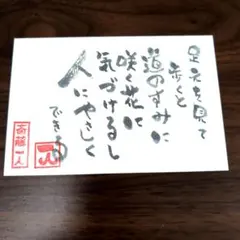 足元を見て
歩くと
道のすみに
咲く花に
気づけるし
人にやさしく
できる
斎藤一人